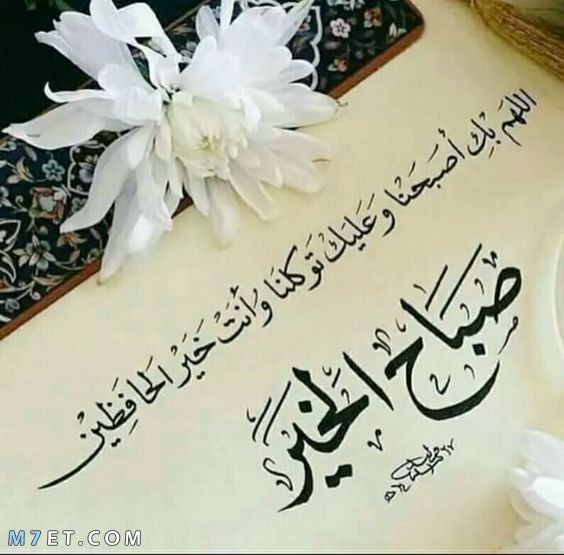 اللهم بِك أصبَحَنا وَعَليَك تَوكلنَا وَأنتَ خَيَر الحَافِظِين
صبَاح الخيَر
M7ET.COM